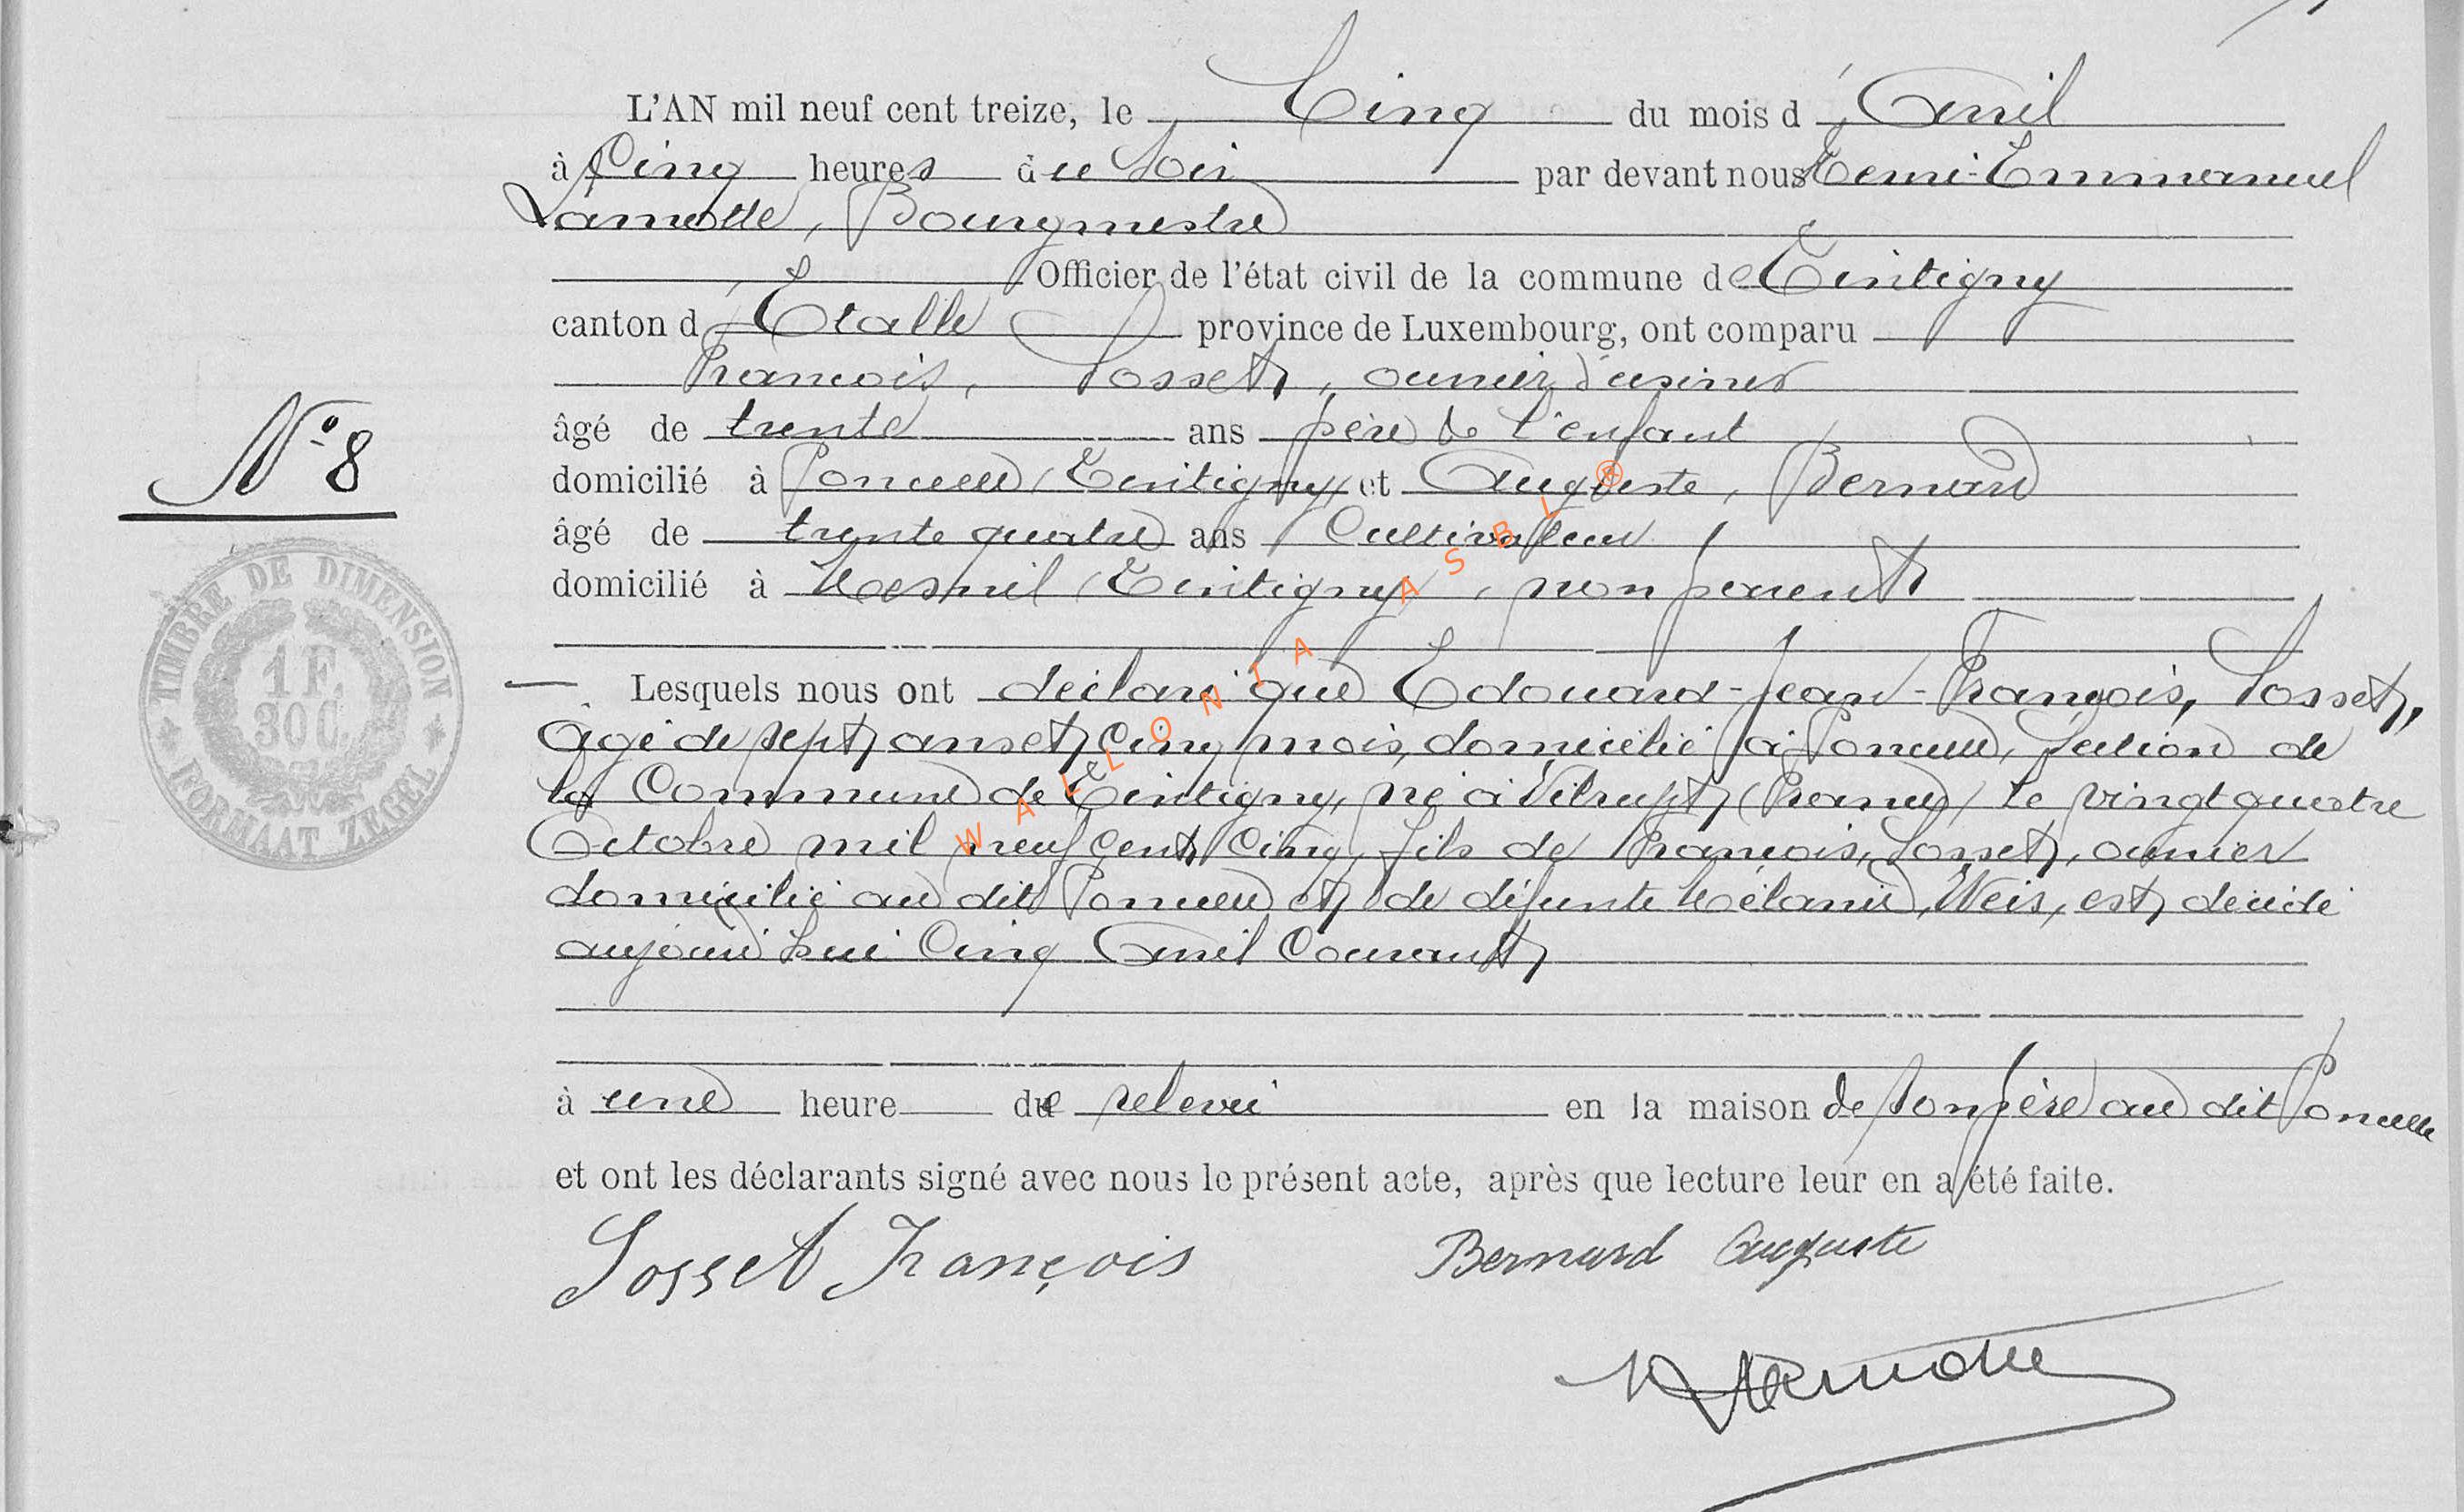 L'AN mil neuf cent treize, le Cinq du mois d'Avril
à Cinq heures du Soir par devant nous Remi-Emmanuel
Lamotte, Bourgmestre
Officier de l'état civil de la commune de Tintigny
canton d'Etalle province de Luxembourg, ont comparu
François, Sosset, ouvrier d'usines
âgé de trente ans père de l'enfant
N° 8
domicilié à Poncelle (Tintigny) et Auguste, Bernard
âgé de trente quatre ans Cultivateur
domicilié à Mesnil (Tintigny), non parent
TIMBRE DE DIMENSION
1 F. 30 C.
FORMAAT ZEGEL
Lesquels nous ont déclaré que Edouard-Jean-François, Sosset,
âgé de sept ans et Cinq mois, domicilié à Poncelle, Section de
la Commune de Tintigny, né à Villerupt (France) le vingt quatre
Octobre mil neuf Cent Cinq, fils de François, Sosset, ouvrier
domicilié au dit Poncelle et de défunte Mélanie, Weis, est décédé
aujourd'hui Cinq Avril Courant
à une heure de relevée en la maison de son père au dit Poncelle
et ont les déclarants signé avec nous le présent acte, après que lecture leur en a été faite.
Sosset François Bernard Auguste
R Lamotte
WALLONIA ASBL ®